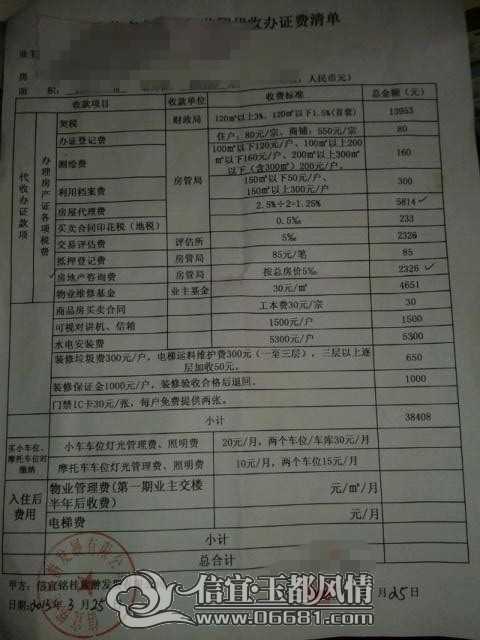 代收办证费清单
业主
房
面 积: ,人民币元)
收款项目 收款单位 收费标准 总金额(元)
代收办证款项
办理房产证各项税费
契税 财政局 120㎡以上3%,120㎡以下1.5%(首套) 13953
办证登记费 房管局 住户:80元/宗,商铺:550元/宗 80
测绘费 100㎡以下120元/户、100㎡以上200㎡以下160元/户、200㎡以上300㎡以下(含300㎡)200元/户, 160
利用档案费 150㎡以下50元/户、150㎡以上300元/户 300
房屋代理费 2.5%÷2=1.25% 5814 ✓
买卖合同印花税(地税) 0.5‰ 233
交易评估费 评估所 5‰ 2326
抵押登记费 房管局 85元/笔 85
房地产咨询费 房管局 按总房价5‰ 2326 ✓
物业维修基金 业主基金 30元/㎡ 4651
商品房买卖合同 工本费30元/宗 30
可视对讲机、信箱 1500元/户 1500
水电安装费 5300元/户 5300
装修垃圾费300元/户,电梯运料维护费300元(一至三层),三层以上逐层加收50元。 650
装修保证金1000元/户,装修验收合格后退回。 1000
门禁IC卡30元/张,每户免费提供两张。
小计 38408
买小车车位、摩托车车位需缴纳
小车车位灯光管理费、照明费 20元/月,两个车位/车库30元/月
摩托车车位灯光管理费、照明费 10元/月,两个车位15元/月
入住后费用
物业管理费(第一期业主交楼半年后收费) 元/㎡/月
电梯费 元/月
小计
总合计
甲方:信宜铭桂旅游发
日期:2015年3月25 月25日
信宜·玉都风情
www.06681.com